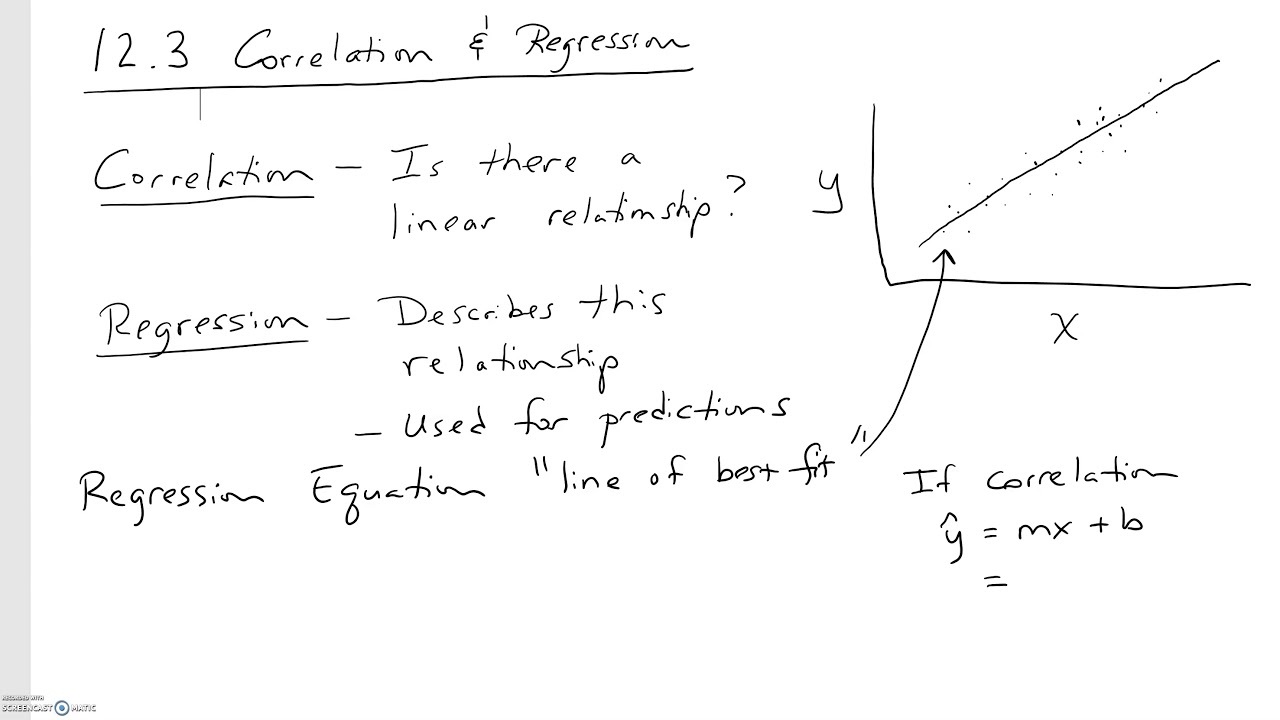 12.3 Correlation & Regression
Correlation – Is there a
linear relationship?
Regression – Describes this
relationship
– Used for predictions
Regression Equation "line of best fit"
y
x
If correlation
ŷ = mx + b
=
RECORDED WITH
SCREENCAST MATIC